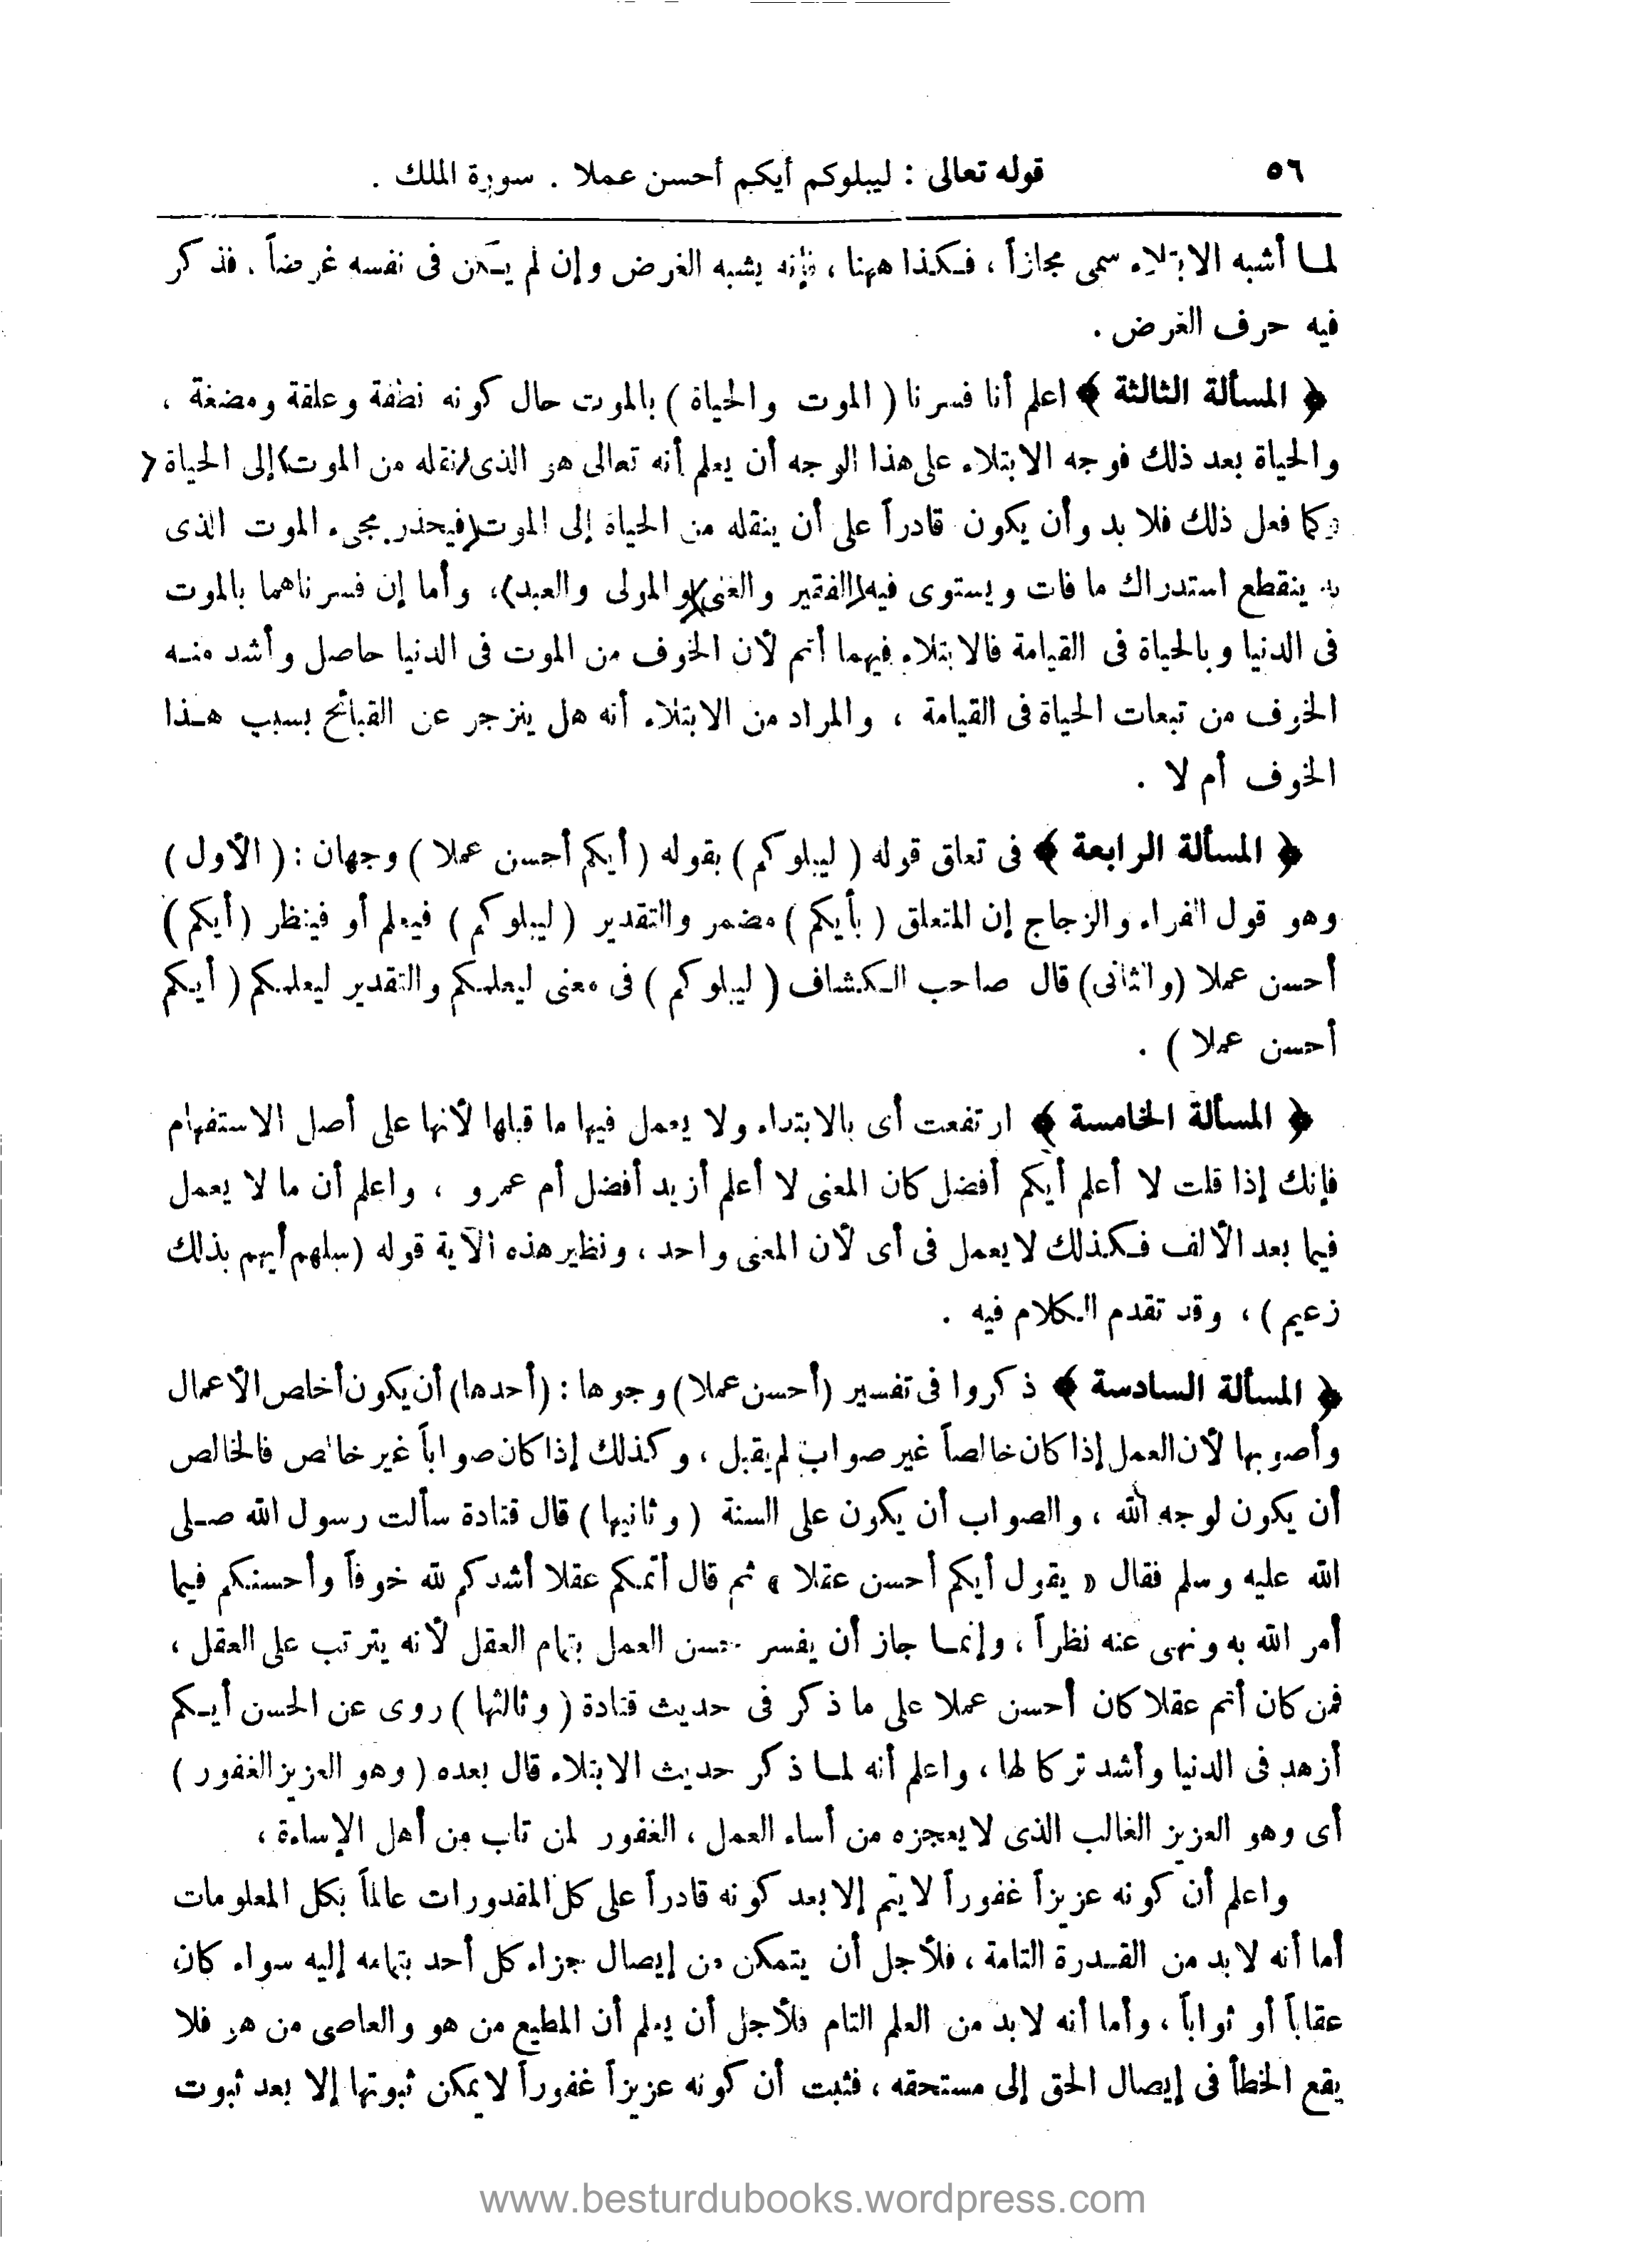 ٥٦ قوله تعالى : ليبلوكم أيكم أحسن عملا . سورة الملك .
لما أشبه الابتلاء سمى مجازاً ، فكذا ههنا ، فإنه يشبه الغرض وإن لم يكن فى نفسه غرضاً . فذكر
فيه حرف الغرض .
﴿ المسألة الثالثة ﴾ اعلم أنا فسرنا ( الموت والحياة ) بالموت حال كونه نطفة وعلقة ومضغة ،
والحياة بعد ذلك فوجه الابتلاء على هذا الوجه أن يعلم أنه تعالى هو الذى نقله من الموت إلى الحياة
وكما فعل ذلك فلا بد وأن يكون قادراً على أن ينقله من الحياة إلى الموت فيحذر مجىء الموت الذى
به ينقطع استدراك ما فات ويستوى فيه الفقير والغنى والمولى والعبد ، وأما إن فسرناهما بالموت
فى الدنيا وبالحياة فى القيامة فالابتلاء فيهما أتم لأن الخوف من الموت فى الدنيا حاصل وأشد منه
الخوف من تبعات الحياة فى القيامة ، والمراد من الابتلاء أنه هل ينزجر عن القبائح بسبب هذا
الخوف أم لا .
﴿ المسألة الرابعة ﴾ فى تعلق قوله ( ليبلوكم ) بقوله ( أيكم أحسن عملا ) وجهان : ( الأول )
وهو قول الفراء والزجاج إن المتعلق ( بأيكم ) مضمر والتقدير ( ليبلوكم ) فيعلم أو فينظر ( أيكم )
أحسن عملا ( والثانى ) قال صاحب الكشاف ( ليبلوكم ) فى معنى ليعلمكم والتقدير ليعلمكم ( أيكم
أحسن عملا ) .
﴿ المسألة الخامسة ﴾ ارتفعت أى بالابتداء ولا يعمل فيها ما قبلها لأنها على أصل الاستفهام
فإنك إذا قلت لا أعلم أيكم أفضل كان المعنى لا أعلم أزيد أفضل أم عمرو ، واعلم أن ما لا يعمل
فيما بعد الألف فكذلك لا يعمل فى أى لأن المعنى واحد ، ونظير هذه الآية قوله ( سلهم أيهم بذلك
زعيم ) ، وقد تقدم الكلام فيه .
﴿ المسألة السادسة ﴾ ذكروا فى تفسير ( أحسن عملا ) وجوها : ( أحدها ) أن يكون أخلص الأعمال
وأصوبها لأن العمل إذا كان خالصاً غير صواب لم يقبل ، وكذلك إذا كان صواباً غير خالص فالخالص
أن يكون لوجه الله ، والصواب أن يكون على السنة ( وثانيها ) قال قتادة سألت رسول الله صلى
الله عليه وسلم فقال « يقول أيكم أحسن عقلا » ثم قال أتمكم عقلا أشدكم لله خوفاً وأحسنكم فيما
أمر الله به ونهى عنه نظراً ، وإنما جاز أن يفسر حسن العمل بتمام العقل لأنه يترتب على العقل ،
فمن كان أتم عقلا كان أحسن عملا على ما ذكر فى حديث قتادة ( وثالثها ) روى عن الحسن أيكم
أزهد فى الدنيا وأشد تركا لها ، واعلم أنه لما ذكر حديث الابتلاء قال بعده ( وهو العزيز الغفور )
أى وهو العزيز الغالب الذى لا يعجزه من أساء العمل ، الغفور لمن تاب من أهل الإساءة ،
واعلم أن كونه عزيزاً غفوراً لا يتم إلا بعد كونه قادراً على كل المقدورات عالماً بكل المعلومات
أما أنه لا بد من القدرة التامة ، فلأجل أن يتمكن من إيصال جزاء كل أحد بتمامه إليه سواء كان
عقاباً أو ثواباً ، وأما أنه لا بد من العلم التام فلأجل أن يعلم أن المطيع من هو والعاصى من هو فلا
يقع الخطأ فى إيصال الحق إلى مستحقه ، فثبت أن كونه عزيزاً غفوراً لا يمكن ثبوتها إلا بعد ثبوت
www.besturdubooks.wordpress.com